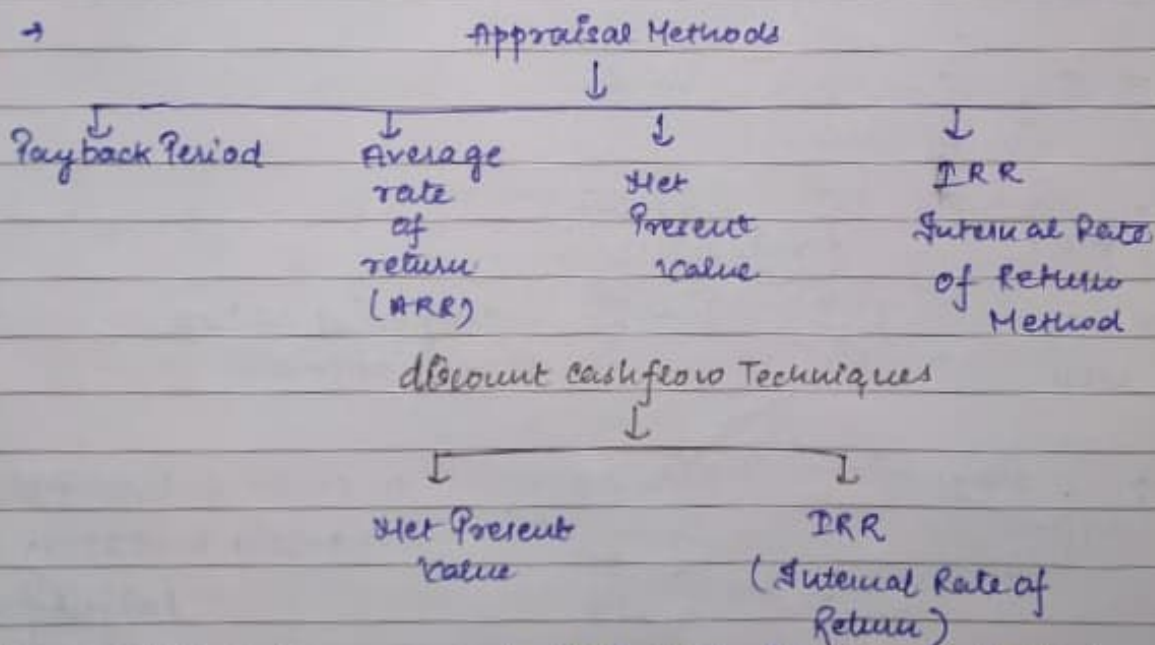 → Appraisal Methods
↓
↓ ↓ ↓ ↓
Payback Period
Average
rate
of
return
(ARR)
Net
Present
Value
IRR
Internal Rate
of Return
Method
discount cashflow Techniques
↓
↓ ↓
Net Present
Value
IRR
(Internal Rate of
Return)